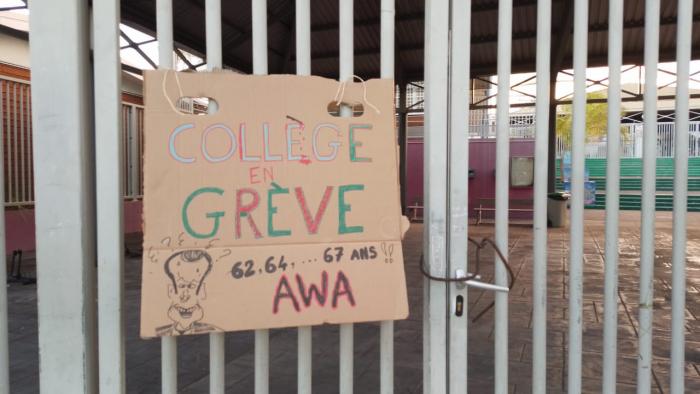 COLLÈGE
EN
GRÈVE
62, 64, ... 67 ANS !!
AWA